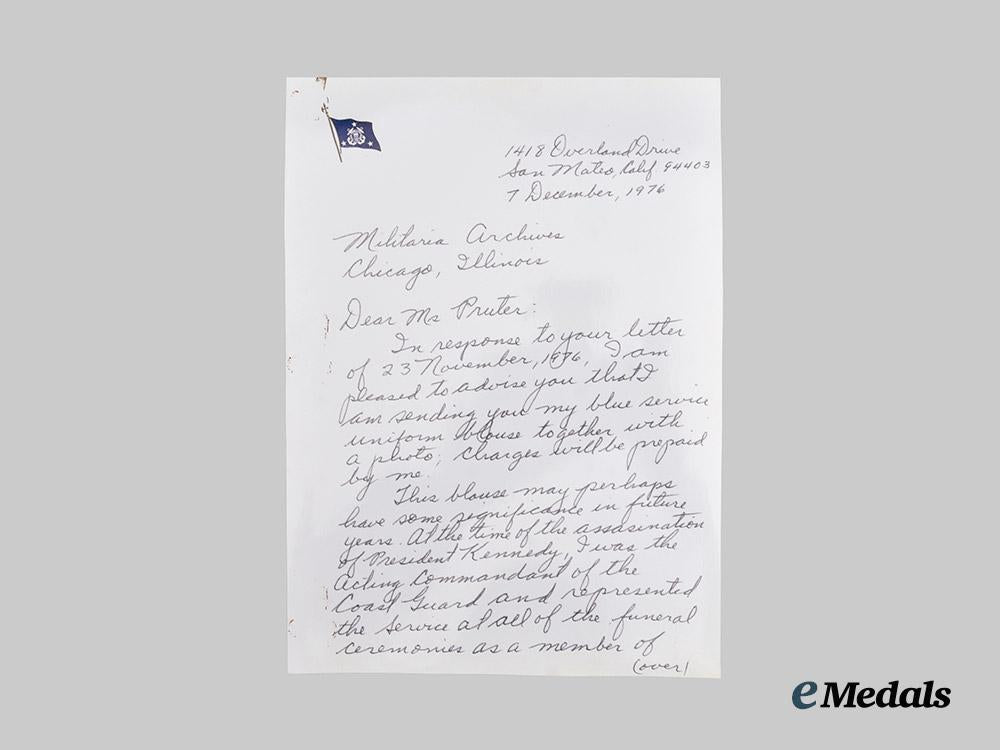 1418 Overland Drive
San Mateo, Calif 94403
7 December, 1976
Militaria Archives
Chicago, Illinois
Dear Ms Pruter:
In response to your letter
of 23 November, 1976, I am
pleased to advise you that I
am sending you my blue service
uniform blouse together with
a photo; charges will be prepaid
by me.
This blouse may perhaps
have some significance in future
years. At the time of the assasination
of President Kennedy, I was the
Acting Commandant of the
Coast Guard and represented
the Service at all of the funeral
ceremonies as a member of
(over)
eMedals